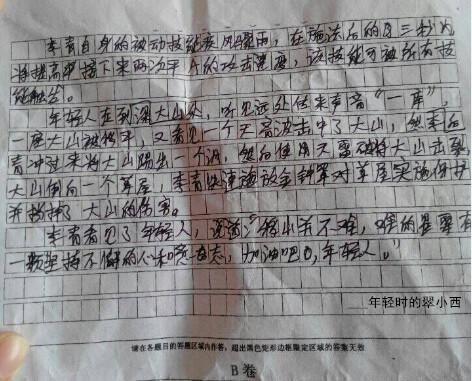 李青自身的被动技能疾风骤雨，在施法后的3三秒内
将提高接下来两次平A的攻击速度，该技能可被所有技
能触发。
年轻人在到深大山处，听见远处传来声音"一库"，
一座大山被传开，又看见一个天音波击中了大山，然后李
青冲过来将大山踢出一个洞，然后使用天雷破将大山击裂
大山倒向一个草屋，李青快速施放金钟罩对草屋实施保护
并抵挡了大山的伤害。
李青看见了年轻人，说道："移山并不难，难的是要有
一颗坚持不懈的心和心态，加油吧，年轻人。"
年轻时的翠小西
请在各题目的答题区域内作答，超出黑色矩形边框限定区域的答案无效
B卷